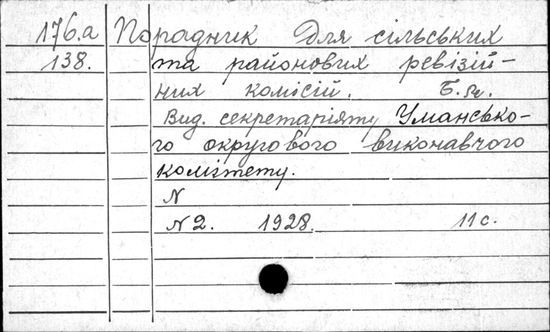 176.а Порадник для сільських
138. та районових ревізій-
них комісій. Б.м.
Вид. секретаріяту Умансько-
го округового виконавчого
комітету.
N
N2. 1928. 11 с.